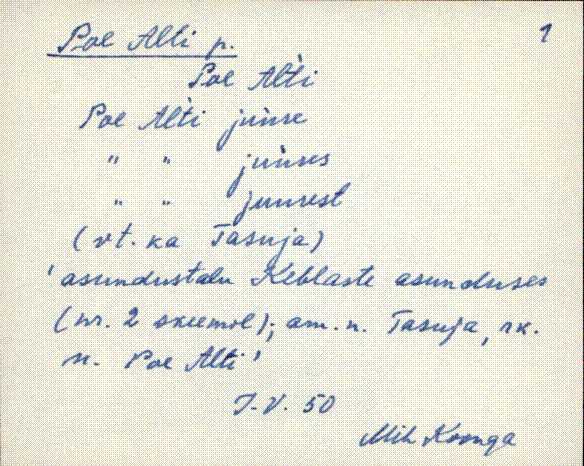 1
Poe Alti p.
Poe Al̀ti
Poe Al̀ti juùre
" " juùres
" " juurest
(vt. ka Tasuja)
'asundustalu Keblaste asunduses
(nr. 2 skeemil); am. n. Tasuja, rk.
n. Poe Alti'
J-V. 50
Mih Koonga